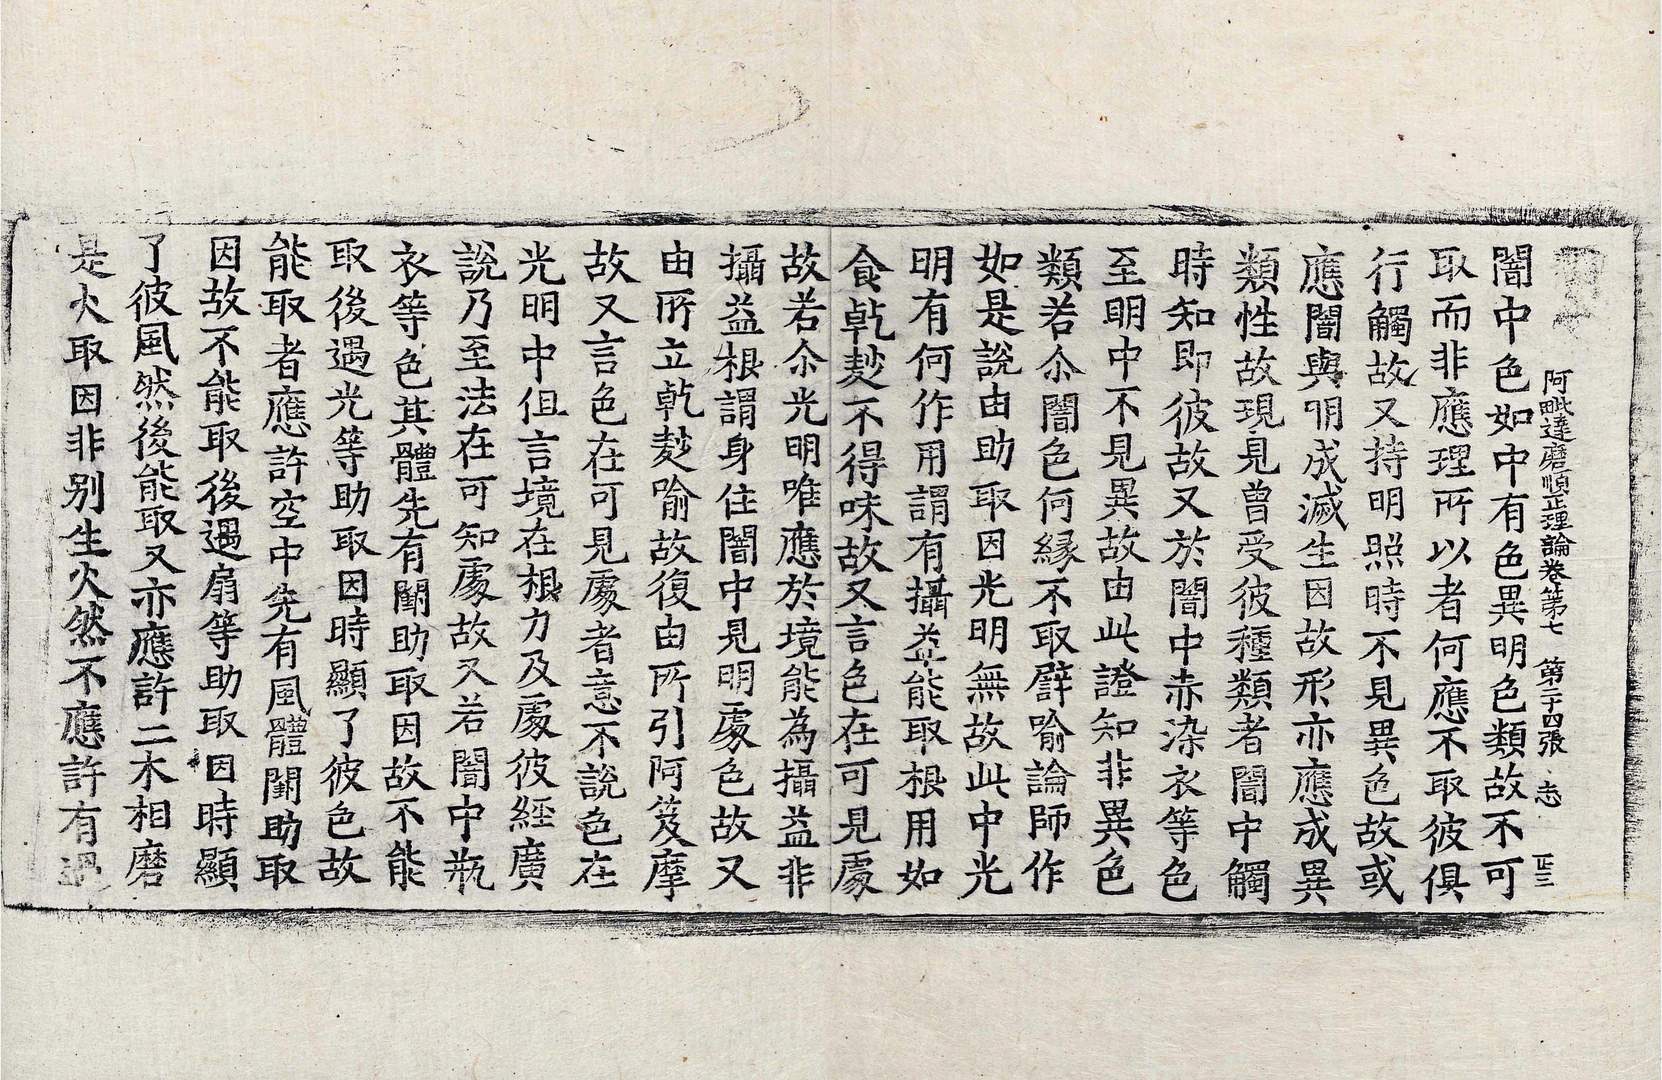 阿毗達磨順正理論卷第七　第二十四張　志
闇中色如中有色異明色類故不可
取而非應理所以者何應不取彼俱
行觸故又持明照時不見異色故或
應闇與明成滅生因故形亦應成異
類性故現見曾受彼種類者闇中觸
時知即彼故又於闇中赤染衣等色
至明中不見異故由此證知非異色
類若尒闇色何緣不取譬喻論師作
如是說由助取因光明無故此中光
明有何作用謂有攝益能取根用如
食乾麨不得味故又言色在可見處
故若尒光明唯應於境能為攝益非
攝益根謂身住闇中見明處色故又
由所立乾麨喻故復由所引阿笈摩
故又言色在可見處者意不說色在
光明中但言境在根力及處彼經廣
說乃至法在可知處故又若闇中瓶
衣等色其體先有闕助取因故不能
取後遇光等助取因時顯了彼色故
能取者應許空中先有風體闕助取
因故不能取後遇扇等助取因時顯
了彼風然後能取又亦應許二木相磨
是火取因非別生火然不應許有過